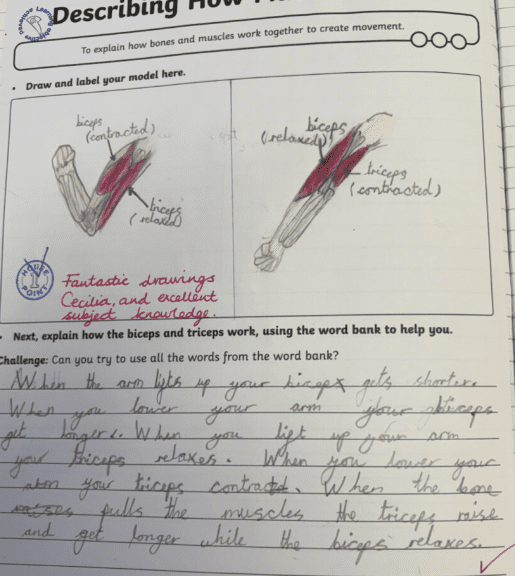 Describing How
To explain how bones and muscles work together to create movement.
• Draw and label your model here.
biceps
(contracted)
triceps
(relaxed)
biceps
(relaxed)
triceps
(contracted)
HOUSE
1
POINT
Fantastic drawings
Cecilia, and excellent
subject knowledge.
• Next, explain how the biceps and triceps work, using the word bank to help you.
Challenge: Can you try to use all the words from the word bank?
When the arm lifts up your biceps gets shorter.
When you lower your arm your biceps
get longer. When you lift up your arm
your triceps relaxes. When you lower your
arm your triceps contract. When the bone
pulls the muscles the triceps raise
and get longer while the biceps relaxes.